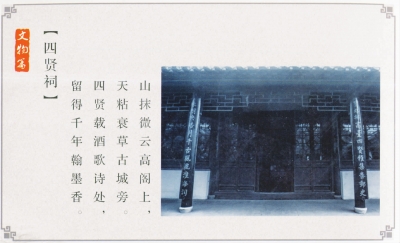 文物篇
【四贤祠】
山抹微云高阁上，
天粘衰草古城旁。
四贤载酒歌诗处，
留得千年翰墨香。